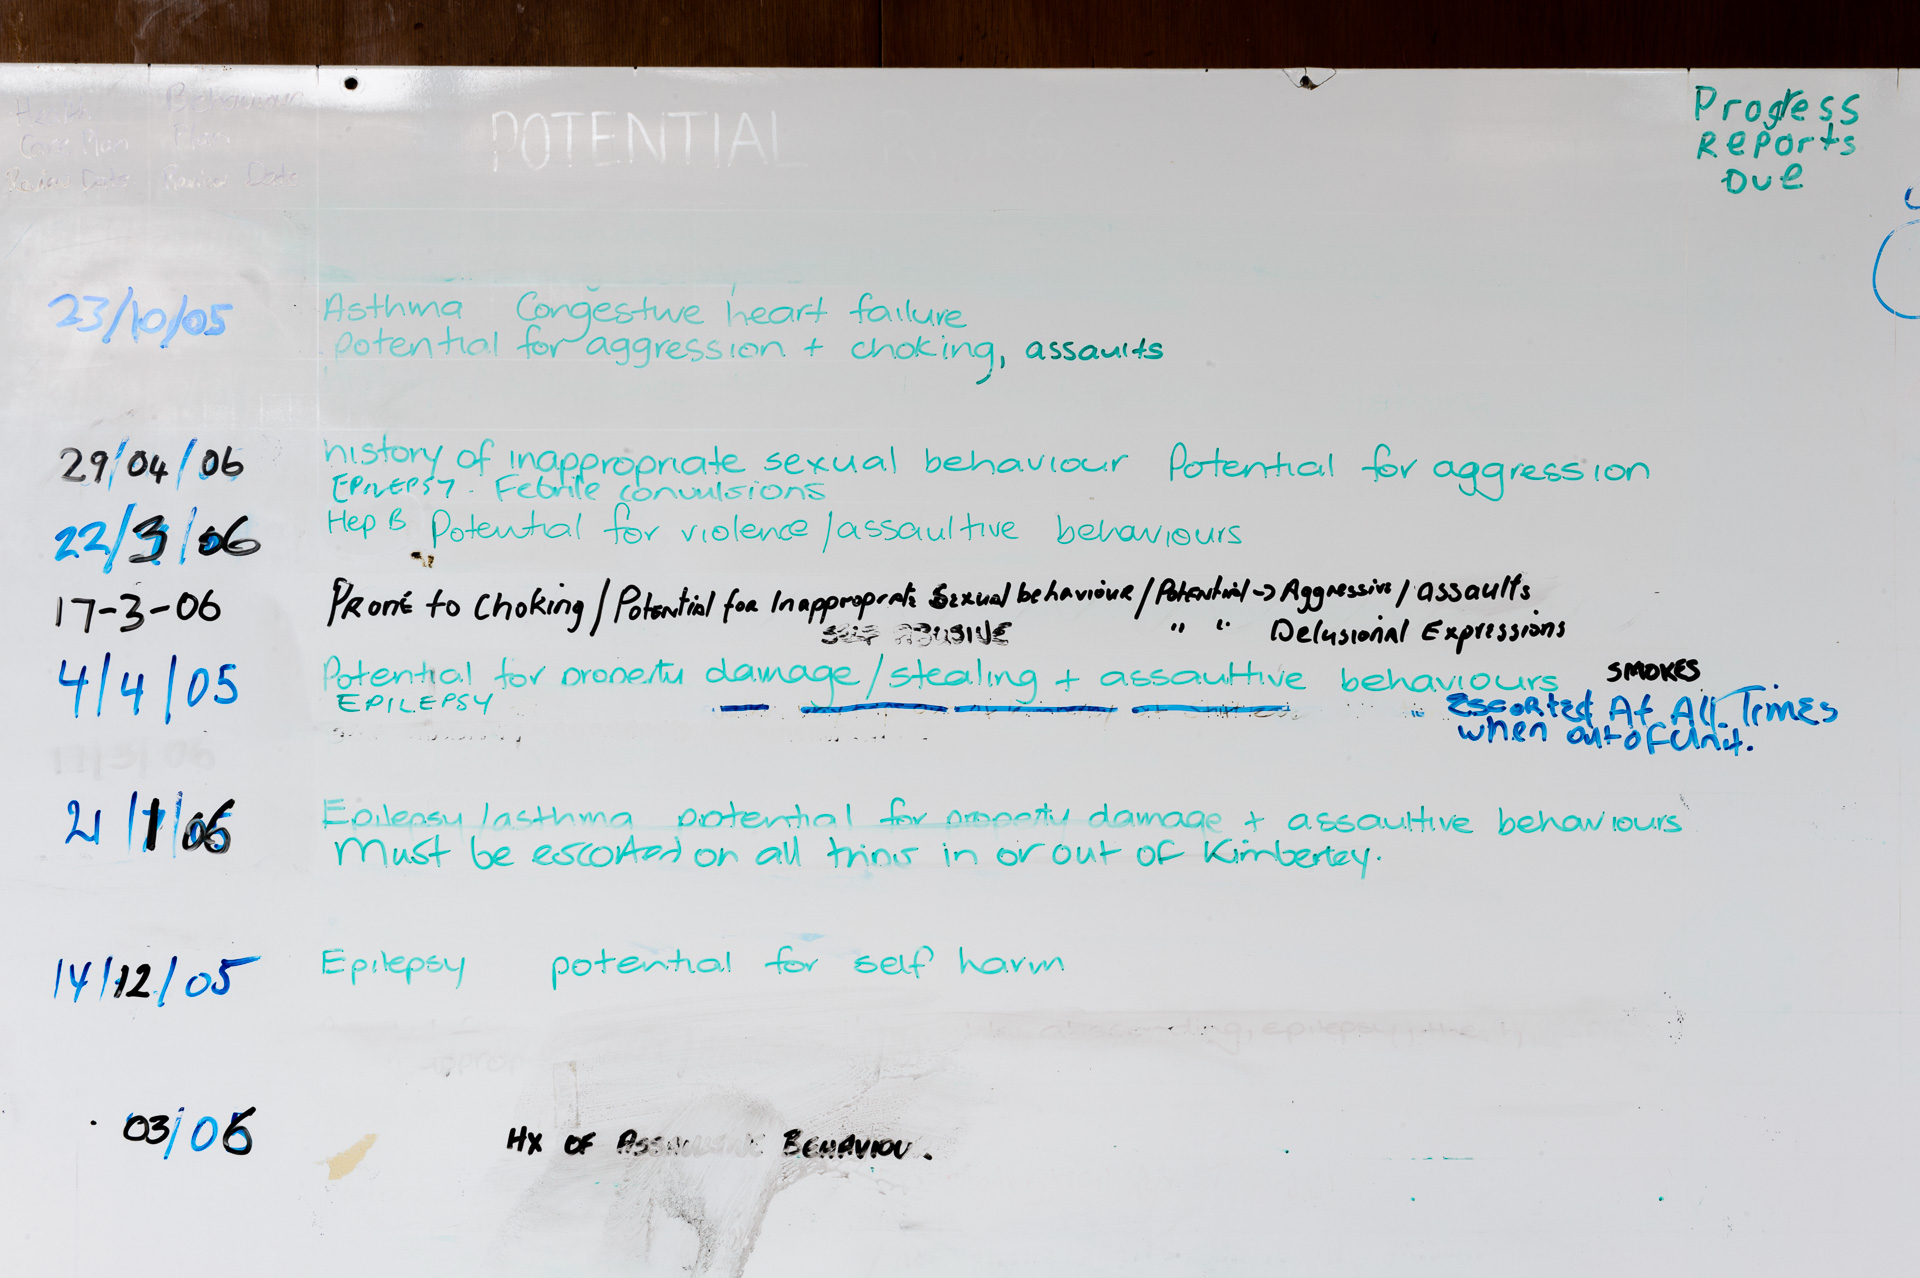 Health Behaviour
Care Plan Plan
Review Date Review Date
POTENTIAL RISKS
Progress
Reports
Due
23/10/05 Asthma Congestive heart failure
potential for aggression + choking, assaults
29/04/06 history of inappropriate sexual behaviour Potential for aggression
EPILEPSY. Febrile convulsions
22/3/06 Hep B Potential for violence/assaultive behaviours
17-3-06 PRONE to Choking/Potential for Inappropriate Sexual behaviour/Potential -> Aggressive/assaults
SELF ABUSIVE " " Delusional Expressions
4/4/05 Potential for property damage/stealing + assaultive behaviours SMOKES
EPILEPSY ESCORTED At All Times
when out of Unit.
17/3/06
21/1/06 Epilepsy/asthma potential for property damage + assaultive behaviours
Must be escorted on all trips in or out of Kimberley.
14/12/05 Epilepsy potential for self harm
absconding, epilepsy,
approp
03/06 HX OF ASSAULTIVE BEHAVIOU.